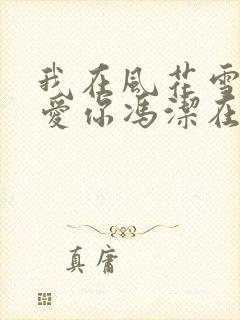 我在風花雪
愛你馮潔在
真庸